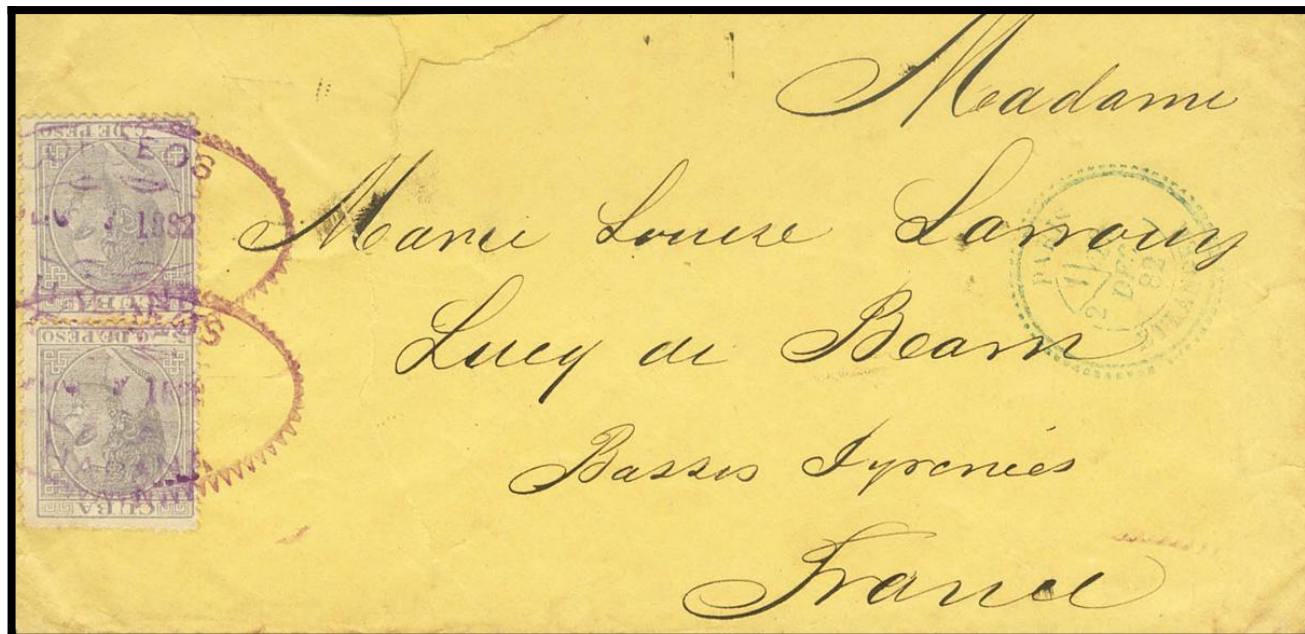 Madame
Marie Louise Larrouy
Lucq de Bearn
Basses Pyrenées
France
C. DE PESO
CORREOS
1882
CUBA
C. DE PESO
CUBA
PARIS
DEC
82
ETRANGER